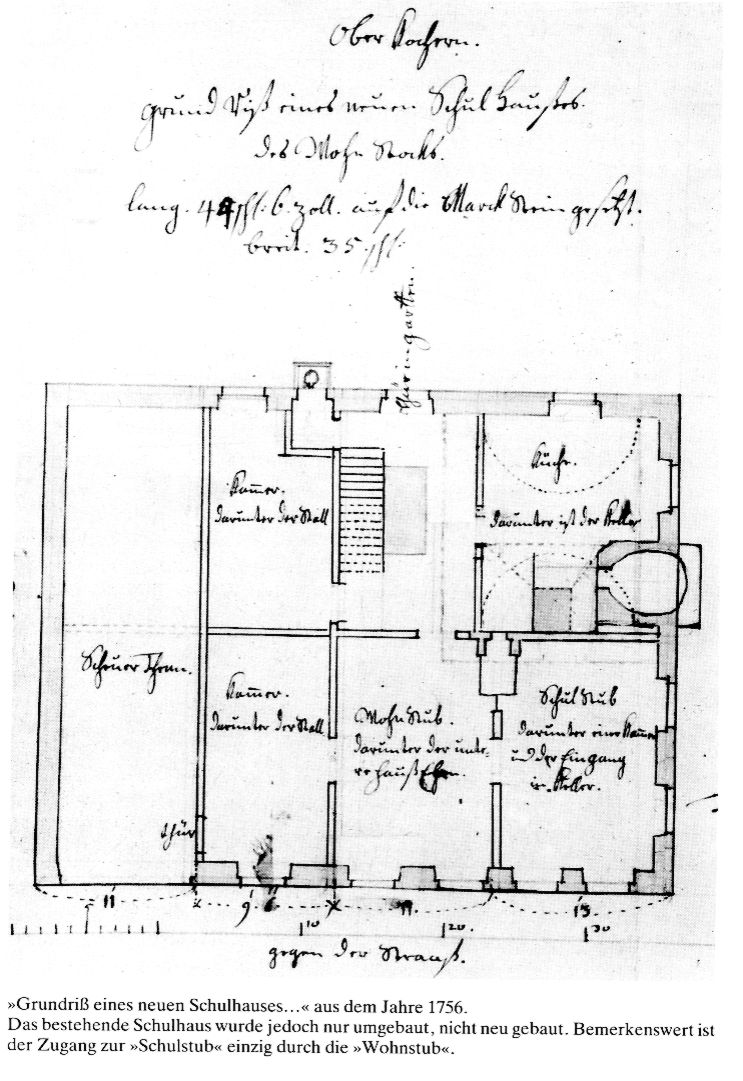 Ober Kochern.
Grund Riß eines neuen Schul Haußes.
des Wohn Stocks.
lang. 44 sch. 6. Zoll. auf die Marck Stein gesetzt.
breit. 35. sch.
Küche.
darunter ist der Keller
Kam̄er.
darunter der Stall
Scheuer Thenn.
Kam̄er.
darunter der Stall
Wohn Stub.
darunter der unte-
re Hauß Ehrn.
Schul Stub
darunter eine Kam̄er
und der Eingang
in Keller.
thür
11 9. 6 11. 13.
5 10 20. 30
gegen der Strauß.
»Grundriß eines neuen Schulhauses...« aus dem Jahre 1756.
Das bestehende Schulhaus wurde jedoch nur umgebaut, nicht neu gebaut. Bemerkenswert ist
der Zugang zur »Schulstub« einzig durch die »Wohnstub«.